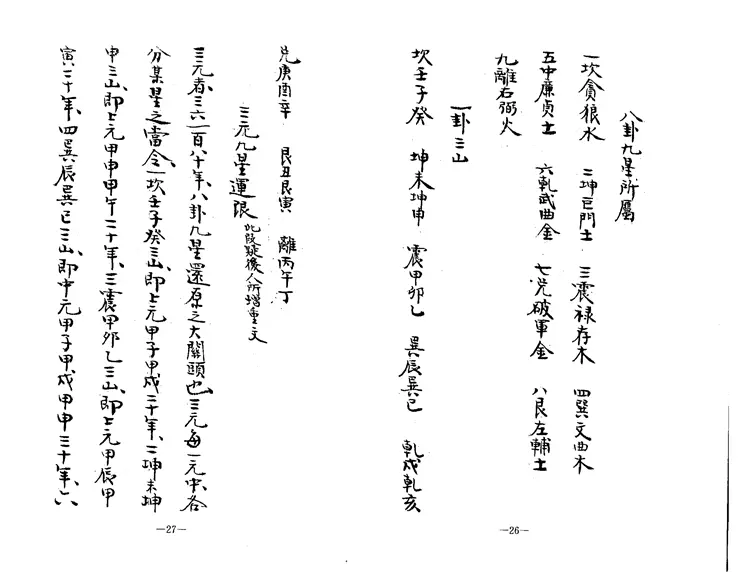 八卦九星所屬
一坎貪狼水 二坤巨門土 三震祿存木 四巽文曲木
五中廉貞土 六乹武曲金 七兌破軍金 八艮左輔土
九離右弼火
一卦三山
坎壬子癸 坤未坤申 震甲卯乙 巽辰巽巳 乹戌乹亥
—26—
兌庚酉辛 艮丑艮寅 離丙午丁
三元九星運限 此段疑後人所增重文
三元者、三六一百八十年、八卦九星還原之大關頭也、三元每一元中、各
分某星之當令、一坎壬子癸三山、即上元甲子甲戌二十年、二坤未坤
申三山、即上元甲申甲午二十年、三震甲卯乙三山、即上元甲辰甲
寅二十年、四巽辰巽巳三山、即中元甲子甲戌甲申三十年、六
—27—